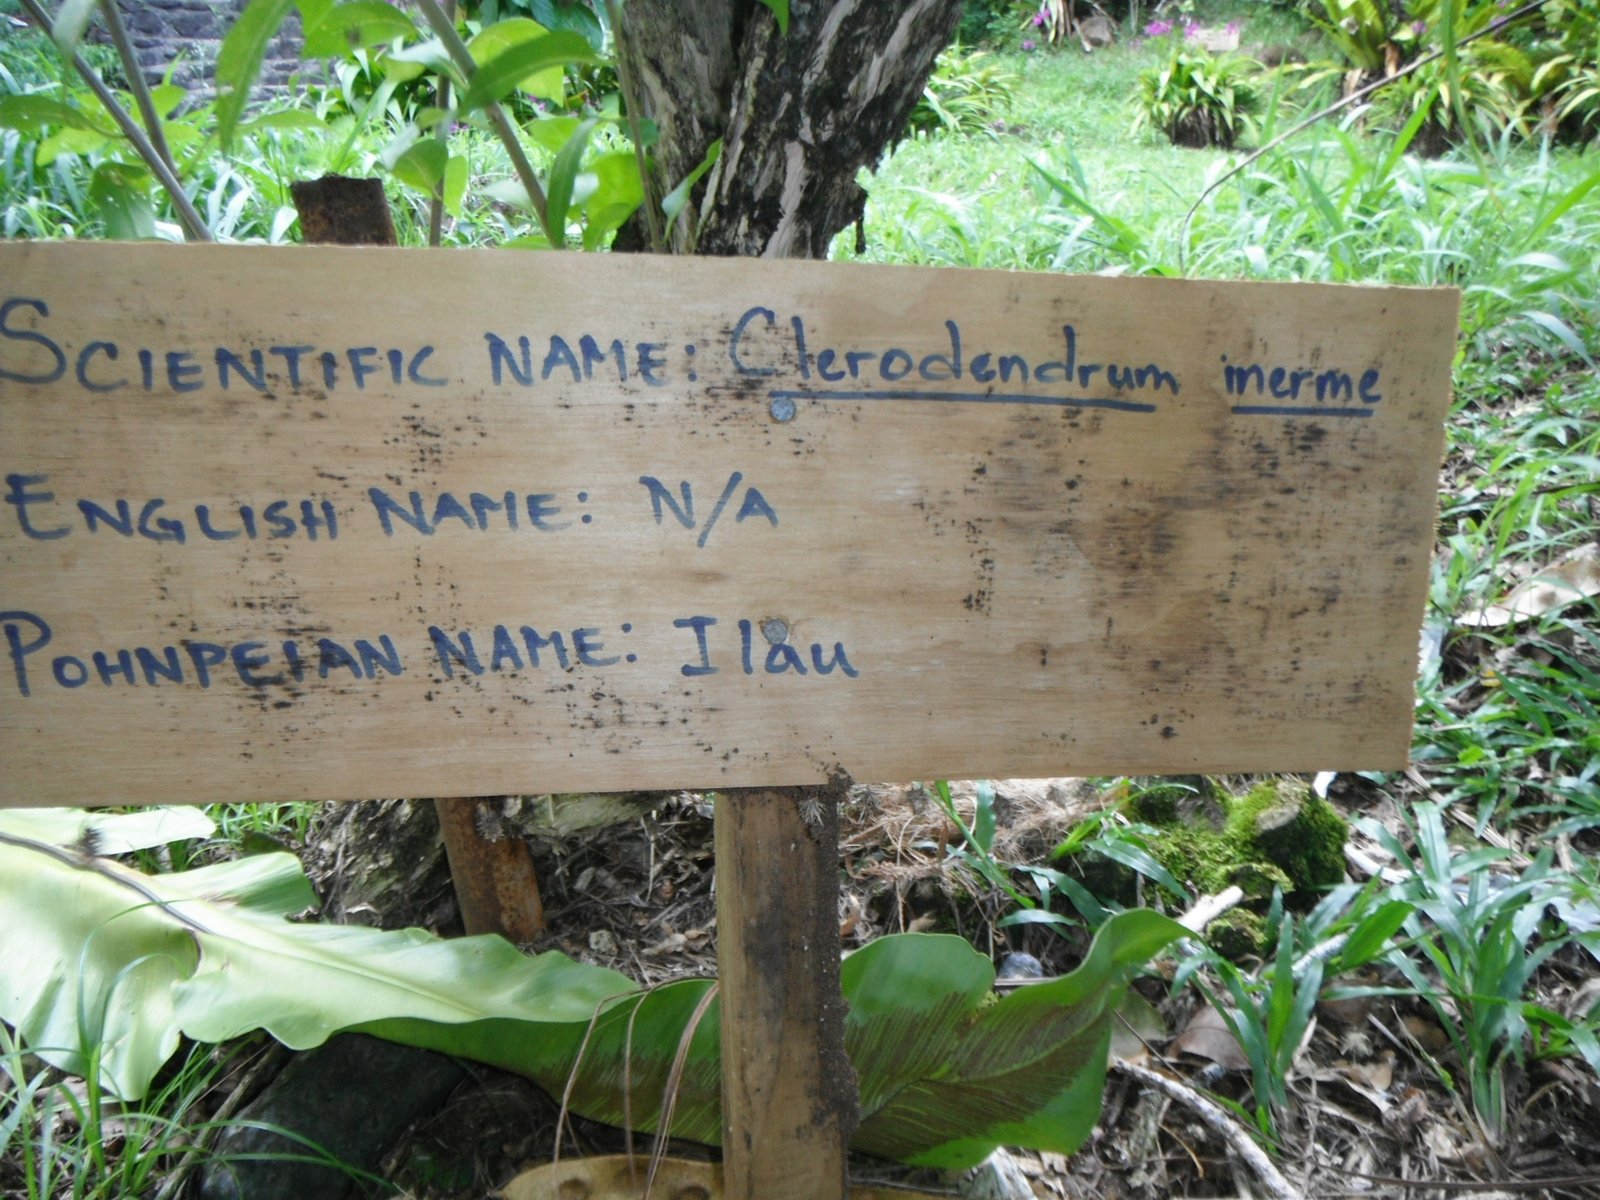 SCIENTIFIC NAME: Clerodendrum inerme
ENGLISH NAME: N/A
POHNPEIAN NAME: Ilau